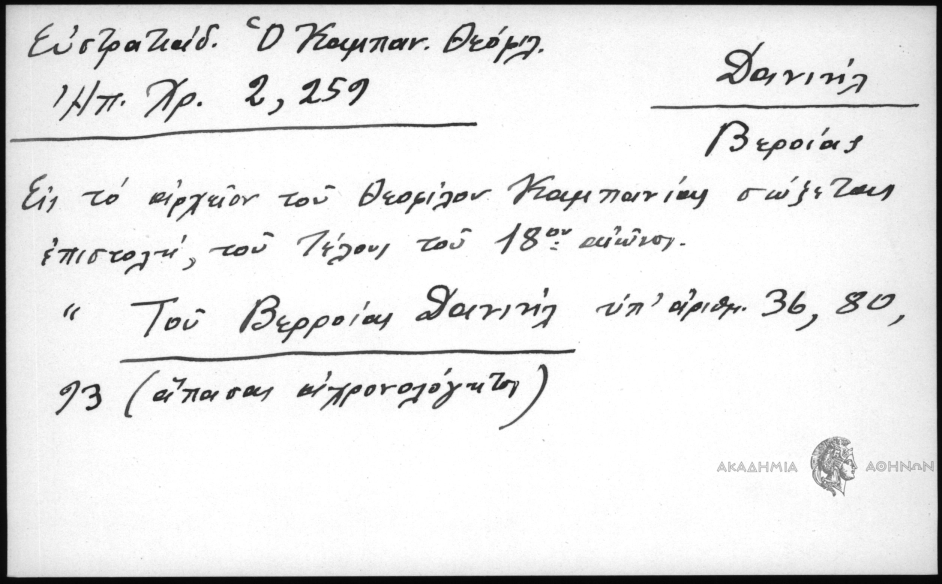 Εὐστρατιάδ. Ὁ Καμπαν. Θεόφιλ.
Ἠπ. Χρ. 2, 259
Δανιὴλ
Βεροίας
Εἰς τὸ ἀρχεῖον τοῦ Θεοφίλου Καμπανίας σώζεται
ἐπιστολή, τοῦ τέλους τοῦ 18ου αἰῶνος.
“ Τοῦ Βερροίας Δανιὴλ ὑπ' ἀριθμ. 36, 80,
93 (ἅπασαι ἀχρονολόγητοι)
ΑΚΑΔΗΜΙΑ ΑΘΗΝΩΝ